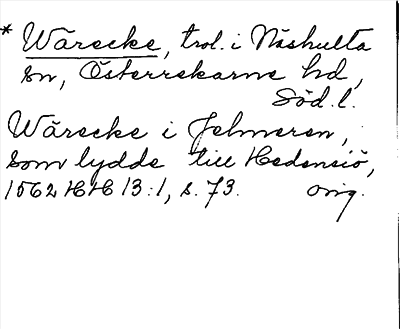 * Wärecke, trol. i Näshulta
sn, Österrekarne hd,
Söd. l.
Wärecke i Jelmeren,
som lydde till Hedensiö,
1562 HH 13:1, s. 73. orig.